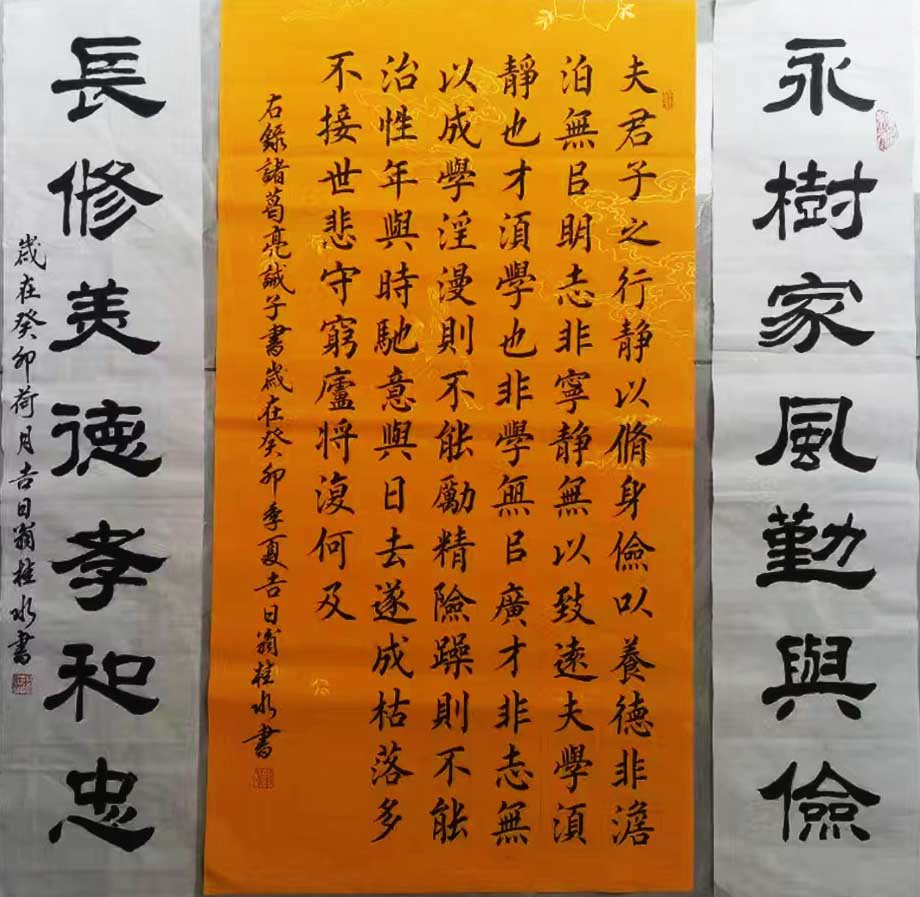 永樹家風勤與儉
夫君子之行静以脩身儉以養德非澹
泊無㠯明志非寧静無以致遠夫學湏
靜也才湏學也非學無㠯廣才非志無
以成學淫漫則不能勵精險躁則不能
治性年與時馳意與日去遂成枯落多
不接世悲守窮廬将復何及
右錄諸葛亮誡子書歲在癸卯季夏吉日翁桂水書
長修美德孝和忠
歲在癸卯荷月吉日翁桂水書